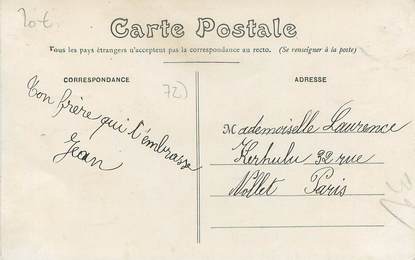 lot
Carte Postale
Tous les pays étrangers n'acceptent pas la correspondance au recto. (Se renseigner à la poste)
CORRESPONDANCE
72)
Ton frère qui t'embrasse
Jean
ADRESSE
Mademoiselle Laurence
Kerhulu 32 rue
Nollet Paris